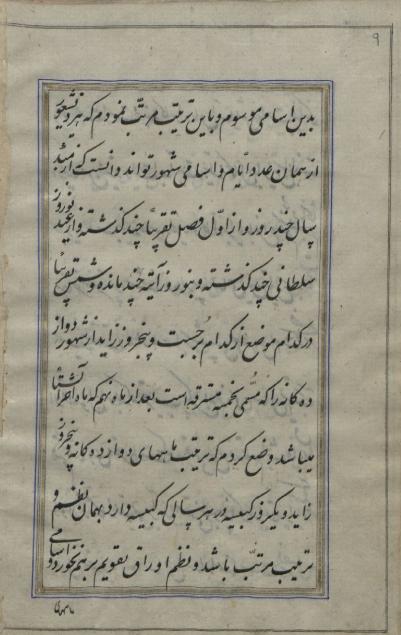 ۹
بدین اسامی موسوم و باین ترتیب مرتب نمودم که هر ذیشعور
از همان عدد ایام و اسامی شهور تواند دانست که از مبدء
سال چند روز و از اول فصل تقریبا چند گذشته و از عید نوروز
سلطانی چند گذشته و بنوروز آتیه چند مانده و شمس تقریبا
در کدام موضع از کدام برجست و پنجروز زاید از شهور دواز
ده کانه را که مسمی بخمسه مسترقه است بعد از ماه نهم که ماه آخر
میباشد وضع کردم که ترتیب ماههای دوازده کانه و پنجروز
زاید و یکروز کبیسه در هر سالی که کبیسه دارد بهمان نظم و
ترتیب مرتب باشد و نظم اوراق تقویم بر هم نخورد و اسامی